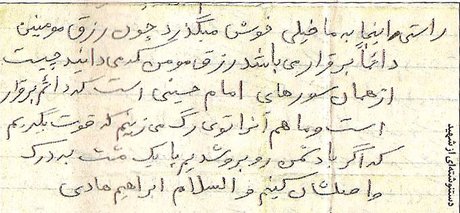 راستی اینجا به ما خیلی خوش میگذرد چون رزق مومنین
دائماً برقرار می باشد رزق مومن که می دانید چیست
از همان سورهای امام حسینی است که دائم برقرار
است و ما هم آنرا توی رگ می زنیم که قوت بگیریم
که اگر با دشمن روبرو شدیم با یک مشت به درک
واصلشان کنیم والسلام ابراهیم هادی
دستنوشته‌ای از شهید